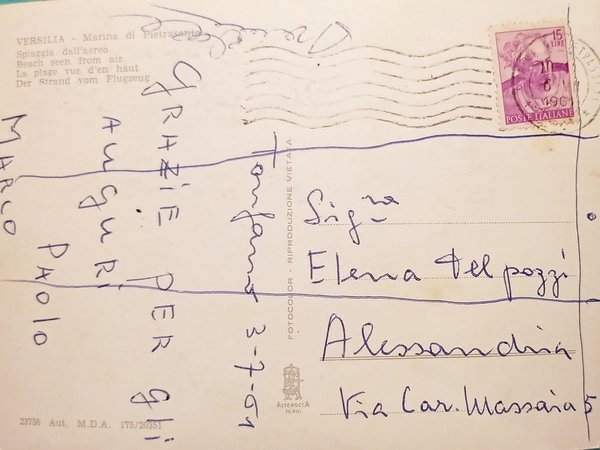 VERSILIA - Marina di Pietrasanta
Spiaggia dall'aereo
Beach seen from air
La plage vue d'en haut
Der Strand vom Flugzeug
15
LIRE
POSTE ITALIANE
GRAZIE PER gli
AUGURI
PAOlO
MARCO
Tonfano 3-7-61
FOTOCOLOR - RIPRODUZIONE VIETATA
Sig.na
Elena Del pozzi
Alessandria
Via Car. Massaia 5
ALTEROCCA
TERNI
23756 Aut. M.D.A. 175/20351